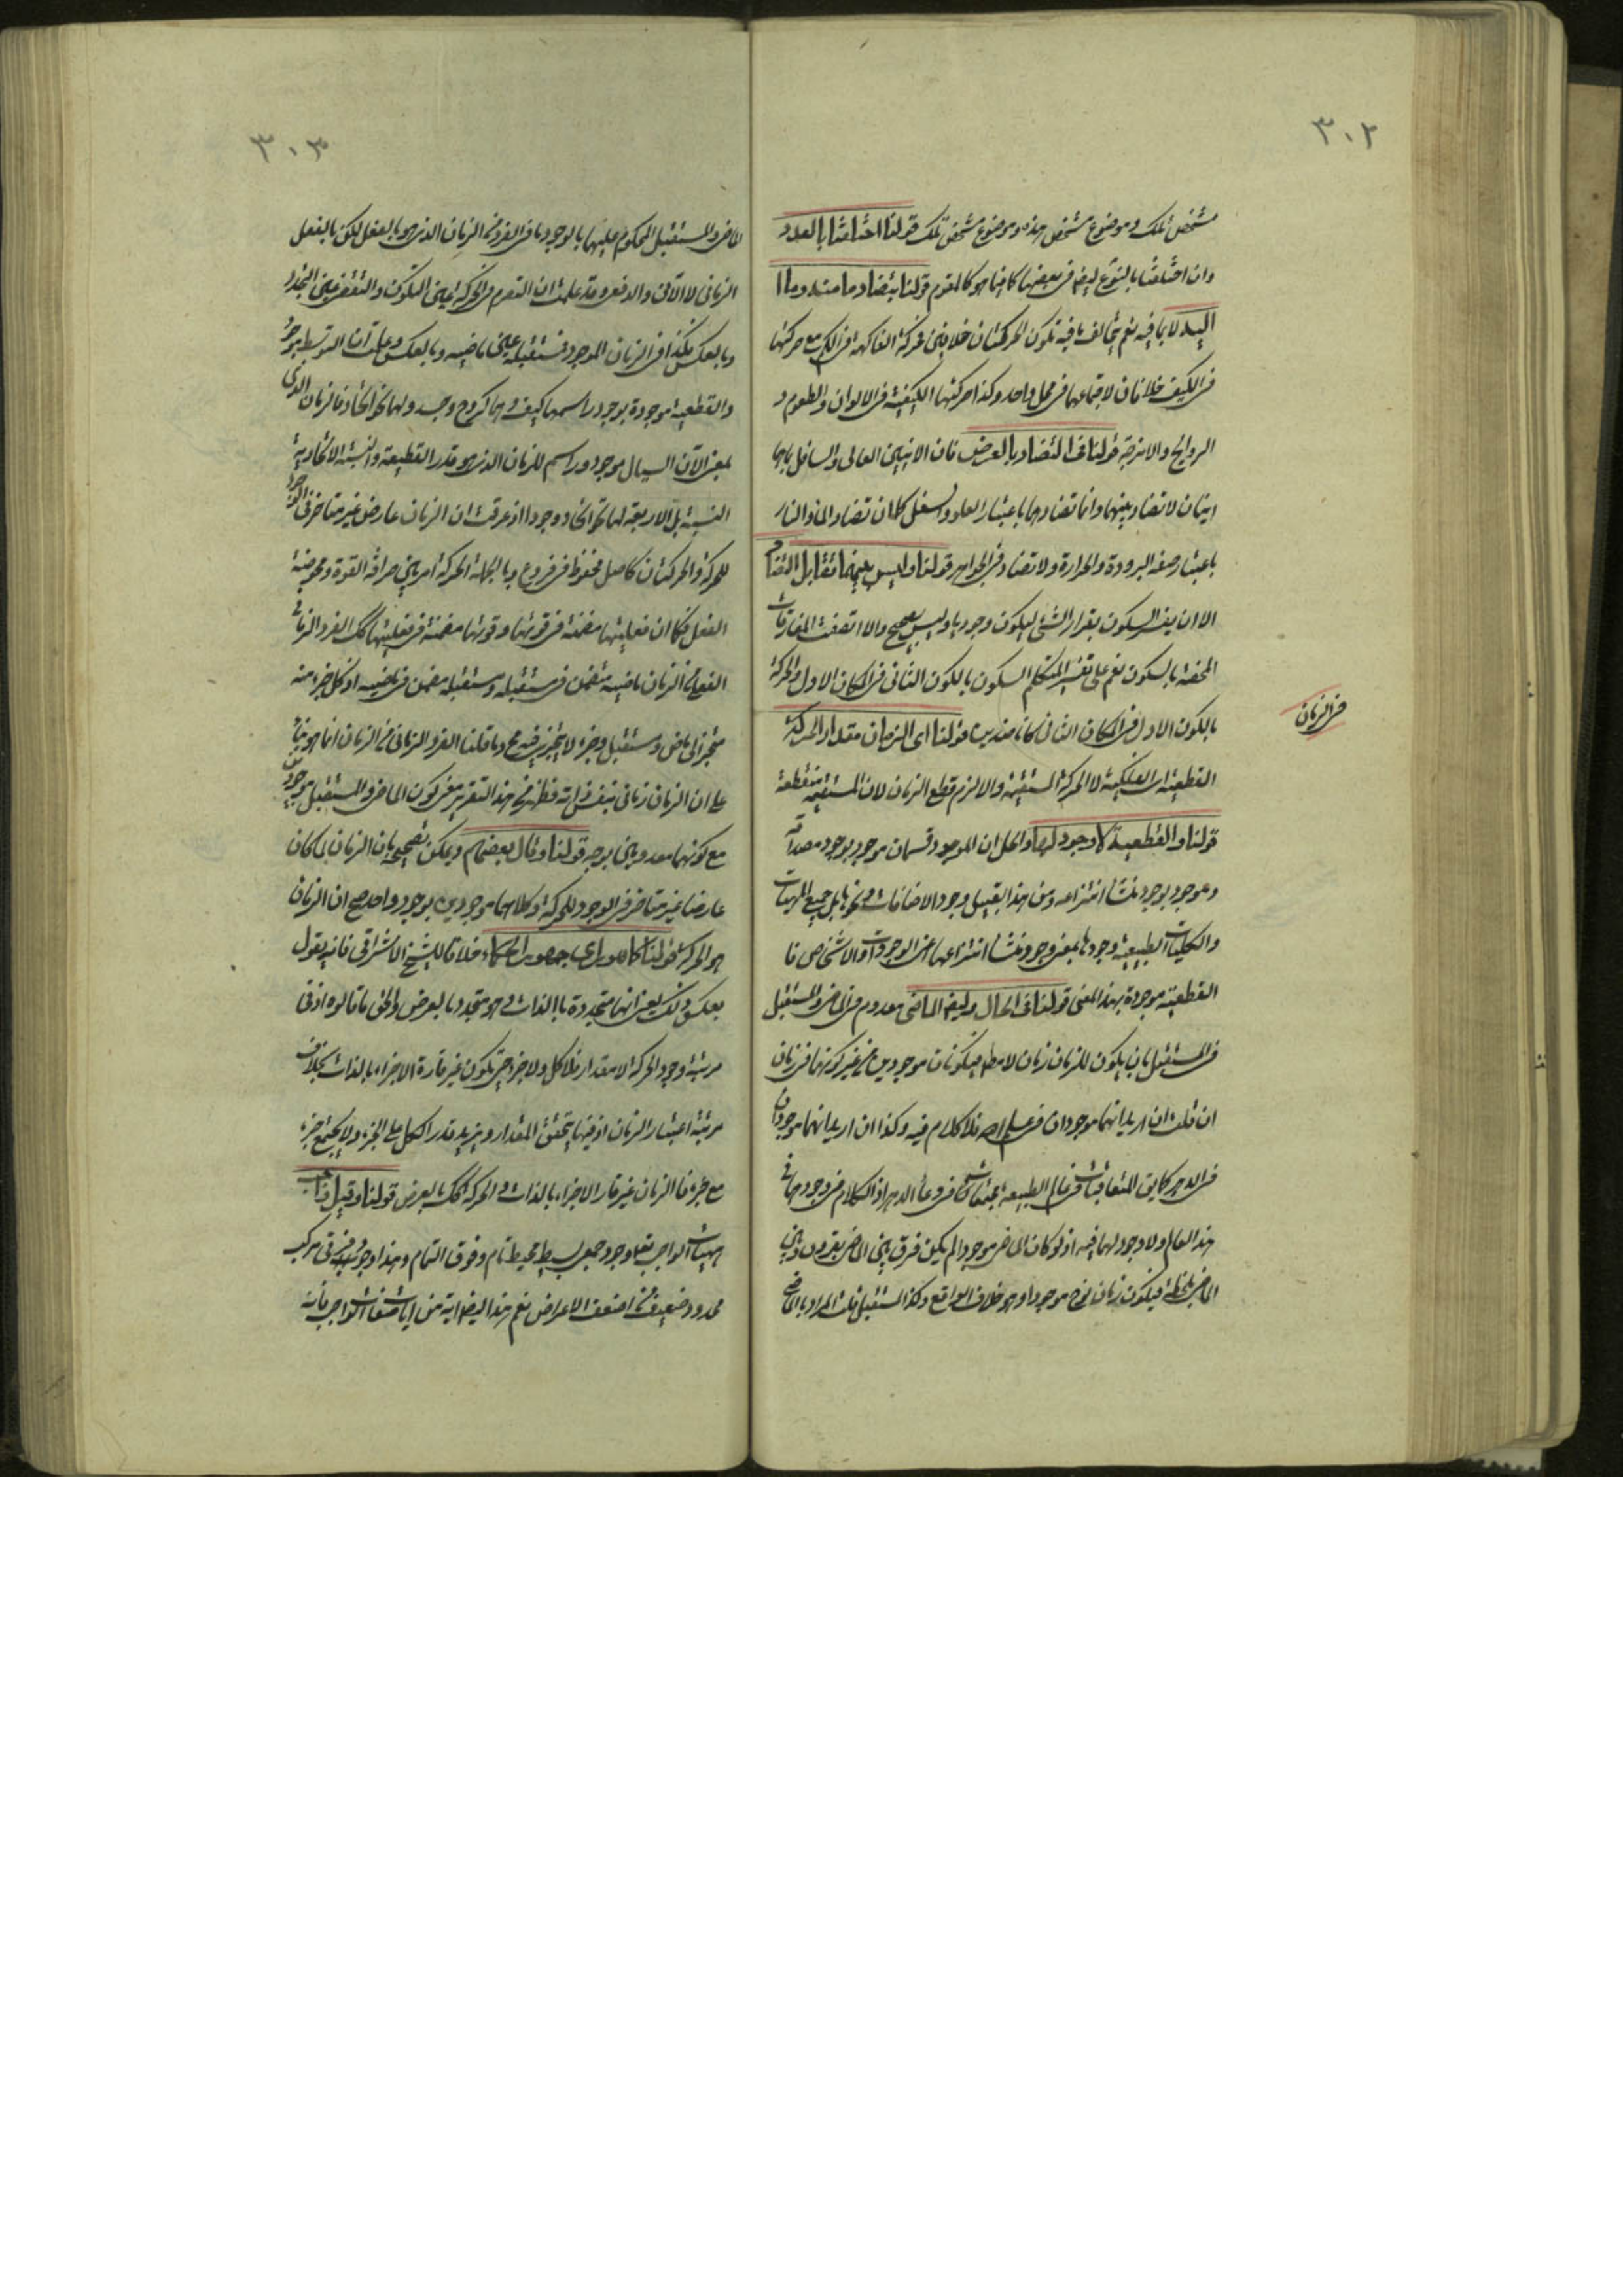 ٣٠٢
مشخص تلك وموضوع مشخص هذه وموضوع مشخص تلك قولنا اختلفتا بالعدد
وان اختلفتا بالنوع ايضا في بعضها كاينا هو كالمقوم قولنا بتضاد ما منه وما ا
اليه لا بما فيه نعم يخالف ما فيه تكون الحركتان خلافين فحركة الفاكهة في الكم مع حركتها
في الكيف خلافان لاجتماعهما في محل واحد وكذا حركتها الكيفية في الالوان والطعوم و
الروايح والامزجة قولنا في التضاد بالعرض فان الاينين العالي والسافل بما هما
اينان لا تضاد بينهما وانما تضادهما باعتبار العلو والسفل كما ان تضاد الماء والنار
باعتبار صفة البرودة والحرارة ولا تضاد في الجواهر قولنا وليس بينهما تقابل التضاد
الا ان يفسر السكون بقرار الشيء ليكون وجوديا وليس بصحيح والا اتصفت المفارقات
المحضة بالسكون نعم على تفسير المتكلم السكون بالكون الثاني في المكان الاول والحركة
في الزمان
بالكون الاول في المكان الثاني كانا ضدين قولنا اي الزمان مقدار الحركة
القطعية اي الفلكية لا الحركة المستقيمة والا لزم قطع الزمان لان المستقيمة منقطعة
قولنا والقطعية لا وجود لها والحل ان الموجود قسمان موجود بوجود مصداقه
وموجود بوجود منشأ انتزاعه ومن هذا القبيل وجود الاضافات ونحوها بل جميع المهيات
والكليات الطبيعية وجودها بمعنى وجود منشأ انتزاعها اعني الوجودات او الاشخاص فا
القطعية موجودة بهذا المعنى قولنا في الحال وايضا الماضي معدوم في الماضي والمستقبل
في المستقبل بان يكون للزمان زمان لا مطلقا فيكونان موجودين من غير كونهما في زمان
ان قلت ان اريد انهما موجودان في علم الله فلا كلام فيه وكذا ان اريد انهما موجودان
في الدهر كما يق المتعاقبات في عالم الطبيعة مجتمعات في وعاء الدهر اذ الكلام في وجودهما في
هذا العالم ولا وجود لهما فيه اذ لو كان الماضي موجودا لم يكن فرق بين الماضي بقرون وبين
الماضي بلحظة فيكون زمان نوح موجودا وهو خلاف الواقع وكذا المستقبل قلت المراد بالماضي
٣٠٣
الماضي والمستقبل المحكوم عليهما بالوجود ما في الفرد من الزمان الذي هو بالفعل لكن بالفعل
الزماني لا الآني والدفعي وقد علمت ان التصرم في الحركة عين التكون والتقضي عين التجدد
وبالعكس فكذا في الزمان الموجود فمستقبله عين ماضيه وبالعكس وعلمت ان التوسط موجود
والقطعية موجودة بوجود راسمها كيف وهما كروح وجسد ولهما نحو اتحاد فالزمان الذي
بمعنى الآن السيال موجود وراسم للزمان الذي هو قدر القطعية والنسبة الاتحادية
النسبة بل الاربعة لها نحو اتحاد وجودا اذ عرفت ان الزمان عارض غير متاخر في الوجود
للحركة والحركتان كاصل محفوظ في فروع وبالجملة الحركة امر بين صرافة القوة ومحوضة
الفعل فكما ان فعليتها مضمنة في قوتها وقوتها مضمنة في فعليتها كك الفرد الزماني
الفعلي من الزمان ماضيه متضمن في مستقبله ومستقبله مضمن في ماضيه اذ كل جزء منه
متجز الى ماض ومستقبل وجزء لا يتجزى فيه مح وما قلنا الفرد الزماني من الزمان انما هو بناء
على ان الزمان زماني بنفس ذاته فظهر من هذا التقرير معنى كون الماضي والمستقبل موجودين
مع كونهما معدومين بوجه قولنا وقال بعضهم ويمكن تصحيحه بان الزمان لما كان
عارضا غير متاخر في الوجود للحركة وكلاهما موجودين بوجود واحد صح ان الزمان
هو الحركة قولنا كما هو راي جمهور الحكماء خلافا للشيخ الاشراقي فانه يقول
بعكس ذلك يعني انها متجددة بالذات وهو متجدد بالعرض والحق ما قالوه اذ في
مرتبة وجود الحركة لا مقدار فلا كل ولا جزء حتى تكون غير قارة الاجزاء بالذات بخلاف
مرتبة اعتبار الزمان اذ فيها يتحقق المقدار ويزيد قدر الكل على الجزء ولا يجتمع جزء
مع جزء فالزمان غير قار الاجزاء بالذات والحركة كك بالعرض قولنا وقيل واجب
هيهات الواجب تعالى وجود جمعي بسيط محيط تام وفوق التمام وهذا وجود فرقي مركب
محدود ضعيف من اضعف الاعراض نعم هذا ايضا اية من ايات صفات الواجب فانه